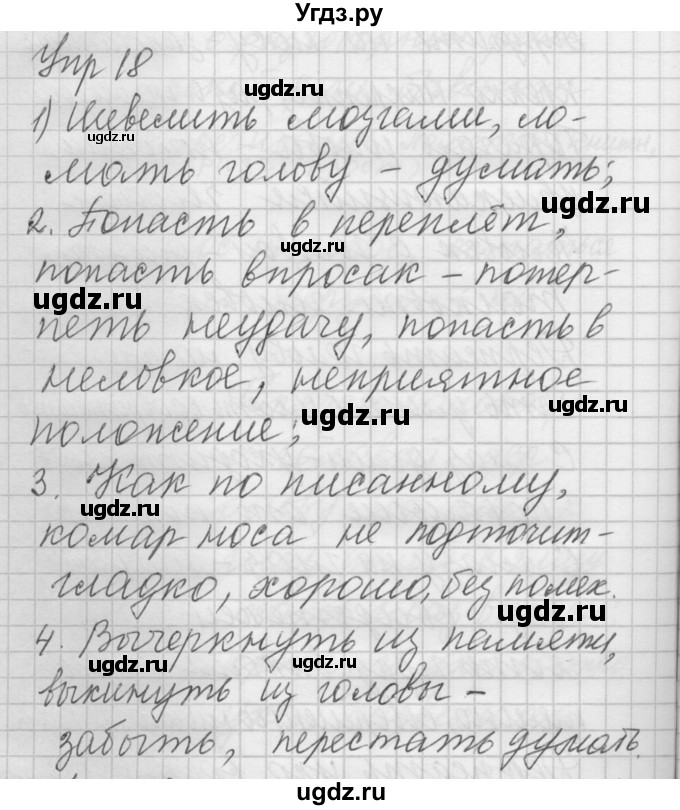 Угдз.ру
Упр 18
ugdz.ru
1) Шевелить мозгами, ло-
ugdz.ru
мать голову – думать;
ugdz.ru
2. Попасть в переплёт,
ugdz.ru
попасть впросак – потер-
ugdz.ru
петь неудачу, попасть в
неловкое, неприятное
ugdz.ru
ugdz.ru
положение;
3. Как по писанному,
ugdz.ru
комар носа не подточит –
гладко, хорошо, без помех.
ugdz.ru
4. Вычеркнуть из памяти,
ugdz.ru
ugdz.ru
выкинуть из головы –
забыть, перестать думать.
ugdz.ru